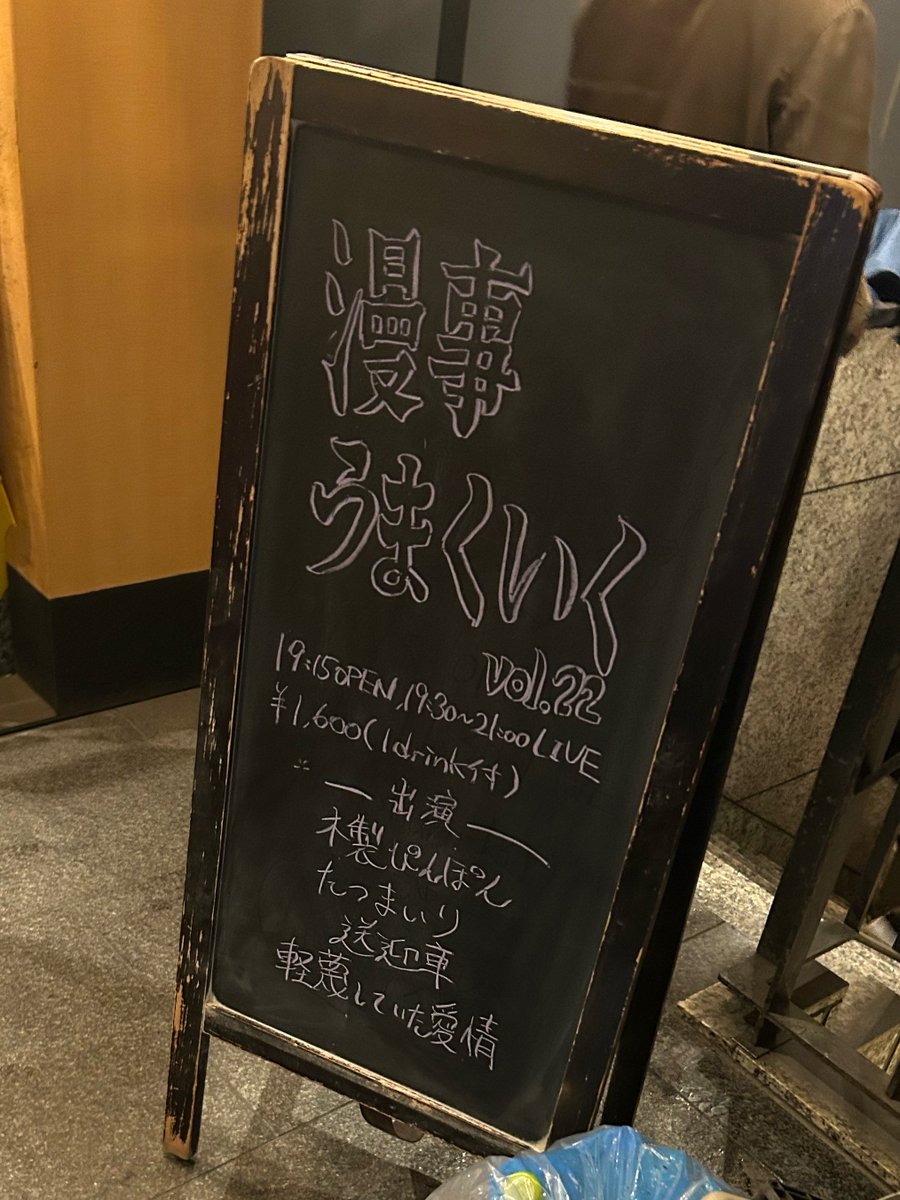 漫事
うまくいく
vol.22
19:15OPEN,19:30~21:00LIVE
¥1,600(1drink付)
出演
木製ぴんぽん
たつまいり
送迎車
軽蔑していた愛情